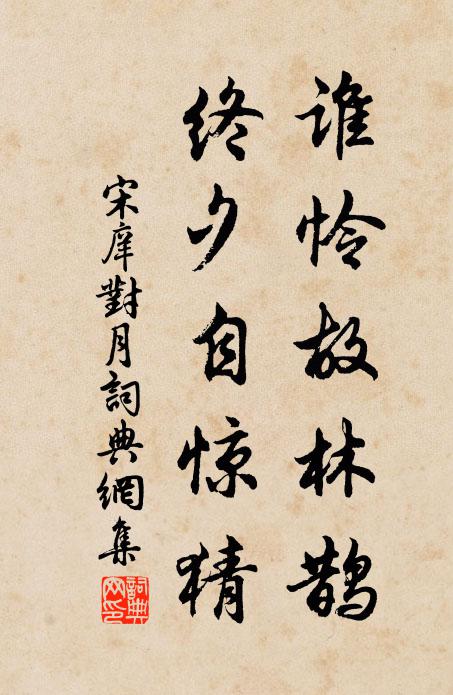 谁怜故林鹊
终夕自惊猜
宋庠對月詞典網集
詞典网印